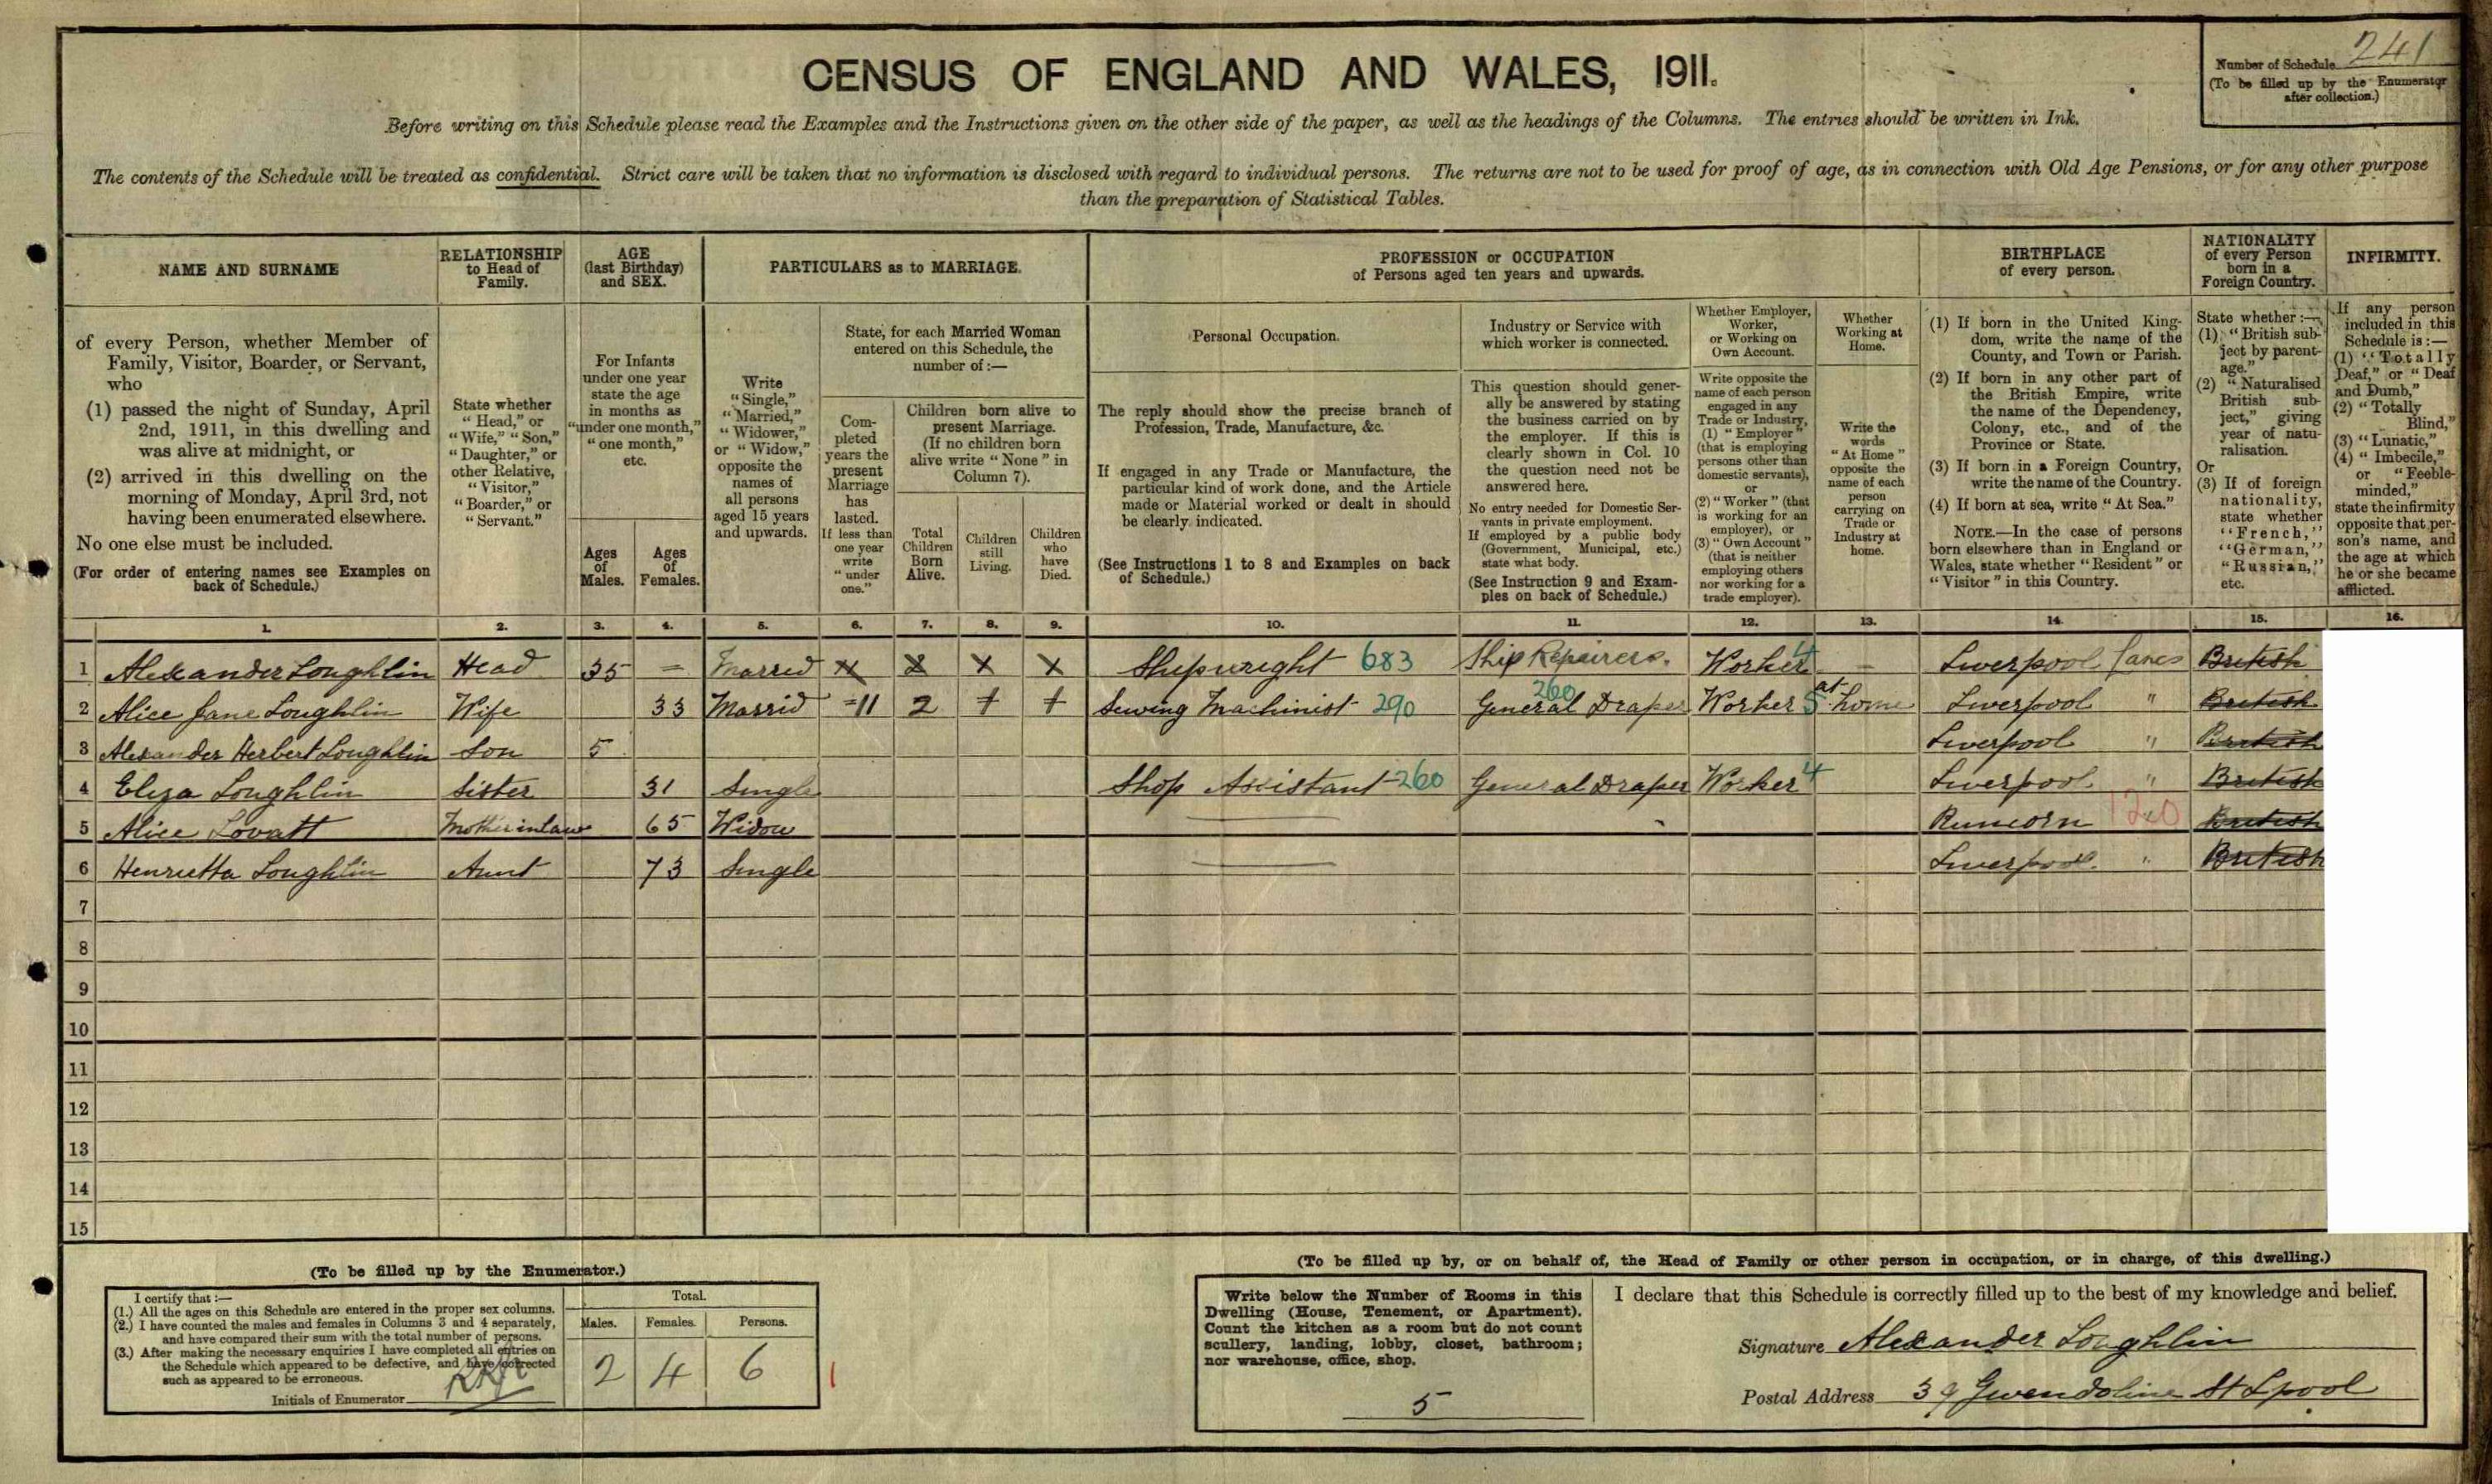 CENSUS OF ENGLAND AND WALES, 1911.
Number of Schedule 241
(To be filled up by the Enumerator after collection.)
Before writing on this Schedule please read the Examples and the Instructions given on the other side of the paper, as well as the headings of the Columns. The entries should be written in Ink.
The contents of the Schedule will be treated as confidential. Strict care will be taken that no information is disclosed with regard to individual persons. The returns are not to be used for proof of age, as in connection with Old Age Pensions, or for any other purpose
than the preparation of Statistical Tables.
NAME AND SURNAME
RELATIONSHIP to Head of Family.
AGE (last Birthday) and SEX.
PARTICULARS as to MARRIAGE.
PROFESSION or OCCUPATION of Persons aged ten years and upwards.
BIRTHPLACE of every person.
NATIONALITY of every Person born in a Foreign Country.
INFIRMITY.
of every Person, whether Member of
Family, Visitor, Boarder, or Servant,
who
(1) passed the night of Sunday, April
2nd, 1911, in this dwelling and
was alive at midnight, or
(2) arrived in this dwelling on the
morning of Monday, April 3rd, not
having been enumerated elsewhere.
No one else must be included.
(For order of entering names see Examples on
back of Schedule.)
State whether
"Head," or
"Wife," "Son,"
"Daughter," or
other Relative,
"Visitor,"
"Boarder," or
"Servant."
For Infants
under one year
state the age
in months as
"under one month,"
"one month,"
etc.
Ages of Males.
Ages of Females.
Write
"Single,"
"Married,"
"Widower,"
or "Widow,"
opposite the
names of
all persons
aged 15 years
and upwards.
State, for each Married Woman
entered on this Schedule, the
number of:—
Completed
years the
present
Marriage
has
lasted.
If less than
one year
write
"under
one."
Children born alive to
present Marriage.
(If no children born
alive write "None" in
Column 7).
Total Children Born Alive.
Children still Living.
Children who have Died.
Personal Occupation.
The reply should show the precise branch of
Profession, Trade, Manufacture, &c.
If engaged in any Trade or Manufacture, the
particular kind of work done, and the Article
made or Material worked or dealt in should
be clearly indicated.
(See Instructions 1 to 8 and Examples on back
of Schedule.)
Industry or Service with
which worker is connected.
This question should gener-
ally be answered by stating
the business carried on by
the employer. If this is
clearly shown in Col. 10
the question need not be
answered here.
No entry needed for Domestic Ser-
vants in private employment.
If employed by a public body
(Government, Municipal, etc.)
state what body.
(See Instruction 9 and Exam-
ples on back of Schedule.)
Whether Employer,
Worker,
or Working on
Own Account.
Write opposite the
name of each person
engaged in any
Trade or Industry,
(1) "Employer"
(that is employing
persons other than
domestic servants),
or
(2) "Worker" (that
is working for an
employer), or
(3) "Own Account"
(that is neither
employing others
nor working for a
trade employer).
Whether
Working at
Home.
Write the
words
"At Home"
opposite the
name of each
person
carrying on
Trade or
Industry at
home.
(1) If born in the United King-
dom, write the name of the
County, and Town or Parish.
(2) If born in any other part of
the British Empire, write
the name of the Dependency,
Colony, etc., and of the
Province or State.
(3) If born in a Foreign Country,
write the name of the Country.
(4) If born at sea, write "At Sea."
NOTE.—In the case of persons
born elsewhere than in England or
Wales, state whether "Resident" or
"Visitor" in this Country.
State whether:—
(1) "British sub-
ject by parent-
age."
(2) "Naturalised
British sub-
ject," giving
year of natu-
ralisation.
Or
(3) If of foreign
nationality,
state whether
"French,"
"German,"
"Russian,"
etc.
If any person
included in this
Schedule is:—
(1) "Totally
Deaf," or "Deaf
and Dumb,"
(2) "Totally
Blind,"
(3) "Lunatic,"
(4) "Imbecile,"
or "Feeble-
minded,"
state the infirmity
opposite that per-
son's name, and
the age at which
he or she became
afflicted.
1. 2. 3. 4. 5. 6. 7. 8. 9. 10. 11. 12. 13. 14. 15. 16.
1 Alexander Loughlin Head 35 – Married X X X X Shipwright 683 Ship Repairers. Worker 4 – Liverpool Lancs British
2 Alice Jane Loughlin Wife 33 Marrid 11 2 + + Sewing Machinist 290 General Draper 260 Worker 5 at home Liverpool " British
3 Alexander Herbert Loughlin Son 5 Liverpool " British
4 Eliza Loughlin Sister 31 Single Shop Assistant 260 General Draper Worker 4 Liverpool " British
5 Alice Lovatt Mother in Law 65 Widow Runcorn 120 British
6 Henrietta Loughlin Aunt 73 Single Liverpool " British
7
8
9
10
11
12
13
14
15
(To be filled up by the Enumerator.)
I certify that:—
(1.) All the ages on this Schedule are entered in the proper sex columns.
(2.) I have counted the males and females in Columns 3 and 4 separately,
and have compared their sum with the total number of persons.
(3.) After making the necessary enquiries I have completed all entries on
the Schedule which appeared to be defective, and have corrected
such as appeared to be erroneous.
Initials of Enumerator
Total.
Males. Females. Persons.
2 4 6
(To be filled up by, or on behalf of, the Head of Family or other person in occupation, or in charge, of this dwelling.)
Write below the Number of Rooms in this
Dwelling (House, Tenement, or Apartment).
Count the kitchen as a room but do not count
scullery, landing, lobby, closet, bathroom;
nor warehouse, office, shop.
5
I declare that this Schedule is correctly filled up to the best of my knowledge and belief.
Signature Alexander Loughlin
Postal Address 39 Gwendoline St Lpool